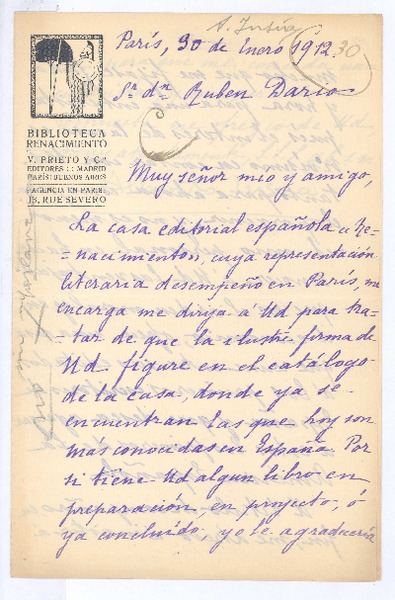 A. Insúa
30
París, 30 de Enero 1912
Sr. dn Ruben Dario
BIBLIOTECA
RENACIMIENTO
V. PRIETO Y Cª
EDITORES :: MADRID
PARÍS : BUENOS AIRES
AGENCIA EN PARIS:
18, RUE SEVERO
Muy señor mio y amigo,
La casa editorial española "Re-
nacimiento", cuya representación
literaria desempeño en París, me
encarga me dirija á Ud para tra-
tar de que la ilustre firma de
Ud. figure en el catálogo
de la casa, donde ya se
encuentran las que hoy son
más conocidas en España. Por
si tiene Ud algun libro en
preparación, en proyecto, ó
ya concluido yo le agradecería